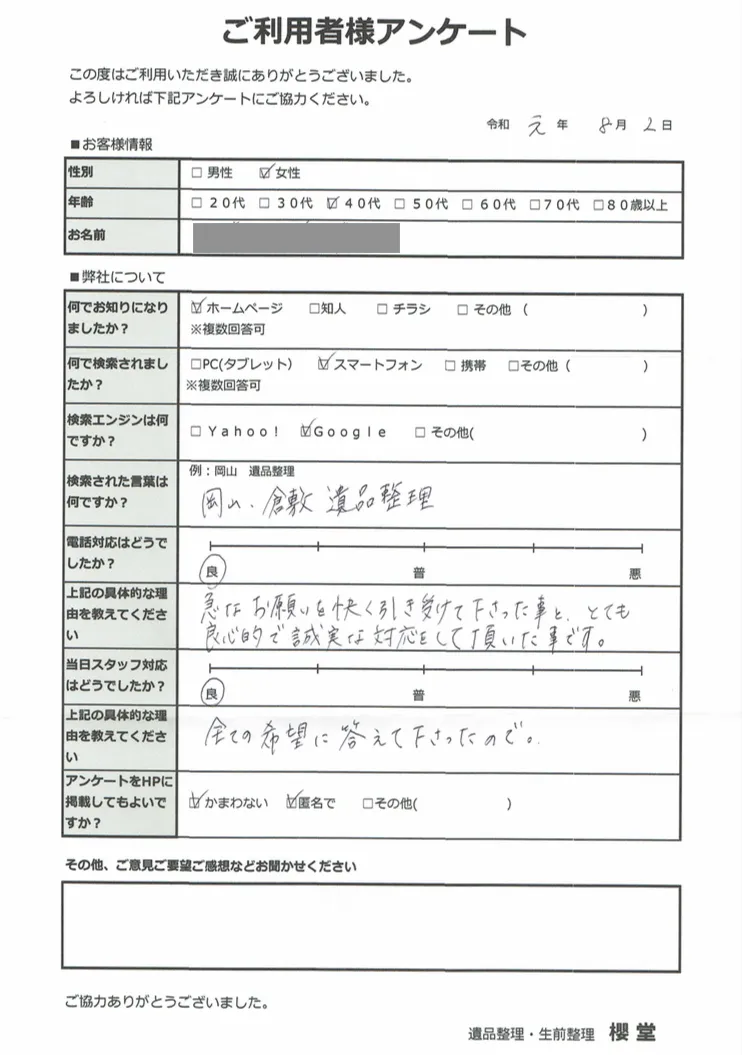 ご利用者様アンケート
この度はご利用いただき誠にありがとうございました。
よろしければ下記アンケートにご協力ください。
令和 元 年 8 月 2 日
■お客様情報
性別 □ 男性 ☑ 女性
年齢 □ 20代 □ 30代 ☑ 40代 □ 50代 □ 60代 □ 70代 □ 80歳以上
お名前
■弊社について
何でお知りになり
ましたか？
☑ ホームページ □知人 □ チラシ □ その他（ ）
※複数回答可
何で検索されまし
たか？
□PC(タブレット） ☑ スマートフォン □ 携帯 □その他（ ）
※複数回答可
検索エンジンは何
ですか？
□ Yahoo! ☑Google □ その他( )
検索された言葉は
何ですか？
例：岡山　遺品整理
岡山、倉敷 遺品整理
電話対応はどうで
したか？
良 普 悪
上記の具体的な理
由を教えてくださ
い
急なお願いを快く引き受けて下さった事と、とても
良心的で誠実な対応をして頂いた事です。
当日スタッフ対応
はどうでしたか？
良 普 悪
上記の具体的な理
由を教えてくださ
い
全ての希望に答えて下さったので。
アンケートをHPに
掲載してもよいで
すか？
☑ かまわない ☑匿名で □その他( )
その他、ご意見ご要望ご感想などお聞かせください
ご協力ありがとうございました。
遺品整理・生前整理 櫻堂